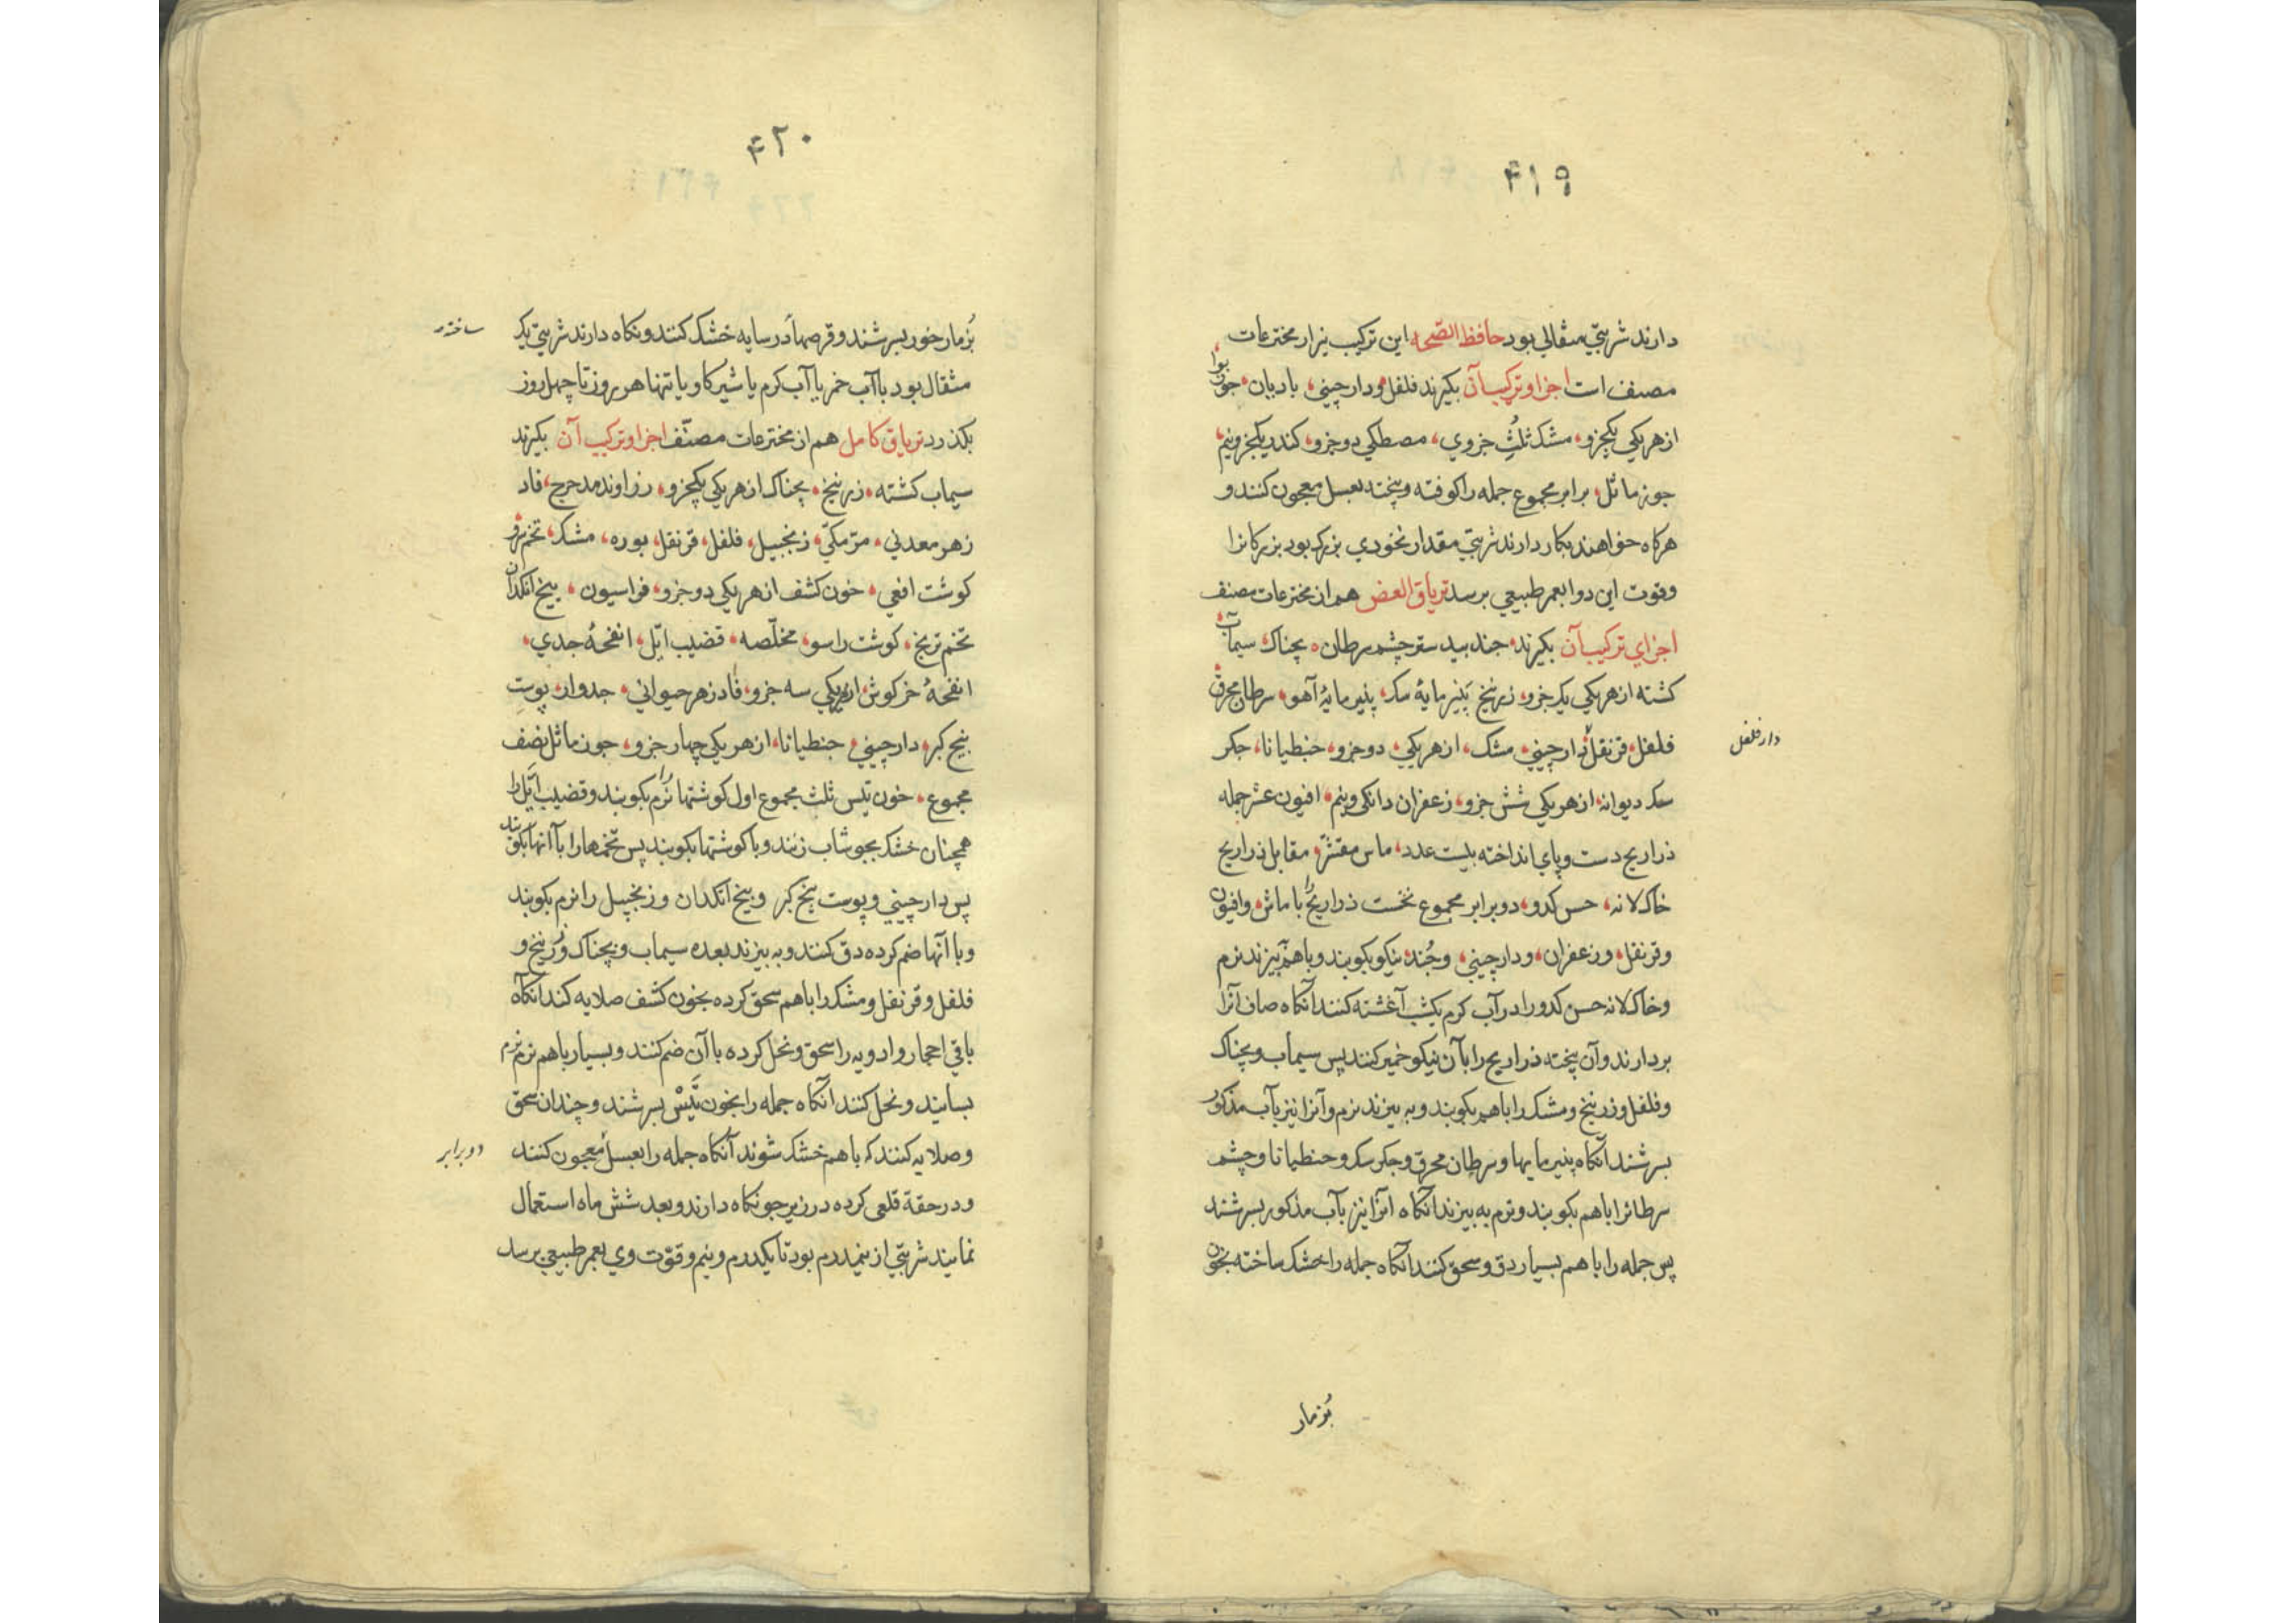 ۴۱۹
دارند شربتی مثقالی بود حافظ الصّحه این ترکیب نیز از مخترعات
مصنف است اجزا و ترکیب آن بکیرند فلفل و دارچینی، بادیان، جوز بوا
از هر یکی یکجزو، مشک ثلُثِ جزوی، مصطکی دو جزو، کندر یکجزو نیم،
جوز ماثل، برابر مجموع جمله را کوفته و بیخته بعسل معجون کنند و
هرکاه خواهند بکار دارند شربتی مقدار نخودی بزرک بود بزرکانرا
و قوت این دوا بعمر طبیعی برسد تریاق العض هم از مخترعات مصنف
اجزای ترکیب آن بکیرند، جند بیدستر چشم سرطان، بچناک، سیماب
کشته از هر یکی یک جزو، زرنیخ پنیر مایهٔ سک، پنیر مایهٔ آهو، سرطان محرق
فلفل، قرنفل، دارچینی، مشک، از هر یکی، دو جزو، جنطیانا، جکر
دار فلفل
سک دیوانه، از هر یکی شش جزو، زعفران دانکی و نیم، افیون عشر جمله
ذراریح دست و پای انداخته بیست عدد، ماس مقشّر، مقابل ذراریح
خاکلانه، حسن کدو، دو برابر مجموع نخست ذراریح را با ماش، و افیون
و قرنفل، و زعفران، و دارچینی، و جُند، نیکو بکوبند و باهم بیزند نرم
و خاکلانه حسن کدو را در آب کرم یکشب آغشته کنند آنکاه صاف آنرا
بردارند و آن پخته ذراریح را بآن نیکو خمیر کنند پس سیماب و بچناک
و فلفل و زرنیخ و مشک را باهم بکوبند و به بیزند نرم و آنرا نیز بآب مذکور
بسرشند آنکاه پنیر مایها و سرطان محرق و جکر سک و جنطیانا و چشم
سرطانرا باهم بکوبند و نرم به بیزند آنکاه آنرا نیز بآب مذکور بسرشند
پس جمله را باهم بسیار دق و سحق کنند آنکاه جمله را خشک ساخته بخون
بُزمار
۴۲۰
بُزمار خور بسرشند و قرصها در سایه خشک کنند و نکاه دارند شربتی یک
ساخته
مثقال بود با آب خمر یا آب کرم یا شیر کاو یا تنها هر روز تا چهل روز
بکذرد تریاق کامل هم از مخترعات مصنّف اجزا و ترکیب آن بکیرند
سیماب کشته، زرنیخ، بچناک از هر یکی یکجزو، زراوند مدحرج، فاد
زهر معدنی، مرّ مکّی، زنجبیل، فلفل، قرنفل، بوره، مشک، تخم ترف
کوشت افعی، خون کشف از هر یکی دو جزو، فراسیون، بیخ انکدان
تخم ترنج، کوشت راسو، مخلّصه، قضیب ایّل، انفحهٔ جدی،
انفحهٔ خرکوش، از هر یکی سه جزو، فاد زهر حیوانی، جدوار، پوستِ
بیخ کبر، دارچینی، جنطیانا، از هر یکی چهار جزو، جوز ماثل نصف
مجموع، خون تَیس ثلث مجموع اول کوشتها را نرم بکوبند و قضیب ایّل را
همچنان خشک بجوشاب زنند و با کوشتها بکوبند پس تخمها را با آنها بکوبند
پس دارچینی و پوست بیخ کبر و بیخ انکدان و زنجبیل را نرم بکوبند
و با آنها ضم کرده دق کنند و به بیزند بعده سیماب و بچناک و زرنیخ و
فلفل و قرنفل و مشک را باهم سحق کرده بخون کشف صلایه کنند آنکاه
باقی احجار و ادویه را سحق و نخل کرده با آن ضم کنند و بسیار باهم نرم نرم
بسایند و نخل کنند آنکاه جمله را بخون تَیْسْ بسرشند و چندان سحق
و صلایه کنند که باهم خشک شوند آنکاه جمله را بعسل معجون کنند
دو برابر
و در حقهٔ قلعی کرده در زیر جو نکاه دارند و بعد شش ماه استعمال
نمایند شربتی از نیمدرم بود تا یکدرم و نیم و قوّت وی بعمر طبیعی برسد